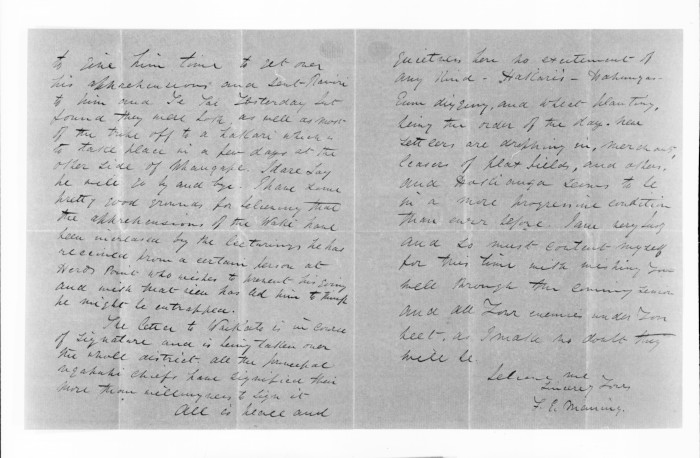 to give him time to get over
his apprehensions and sent
to him and Te Tai Yesterday but
found they were both, as well as most
of the tribe off to a hakari which is
to take place in a few days at the
other side of Whangape. I dare say
he will go by and bye. I have some
pretty good grounds for believing that
the apprehensions of the Waka have
been increased by the lecturings he has
received from a certain person at
Herds Point who wishes to prevent his going
and with that view has led him to think
he might be entrapped.
The letter to Waikato is in course
of signature and is being taken over
the whole district. All the principal
Ngapuhi chiefs have signified their
more than willingness to sign it
All is peace and
quietness here no excitement of
any kind - Hakaris - Nahungas -
Gum digging, and wheat planting,
being the order of the day. New
settlers are dropping in, Merchants,
leasers of flax fields, and others,
and Hokianga seems to be
in a more progressive condition
than ever before. I am very busy
and so must content myself
for this time with wishing You
well through the coming
and all Your enemies under Your
feet, as I make no doubt they
will be.
Believe me
Sincerely Yours
F. E. Maning.